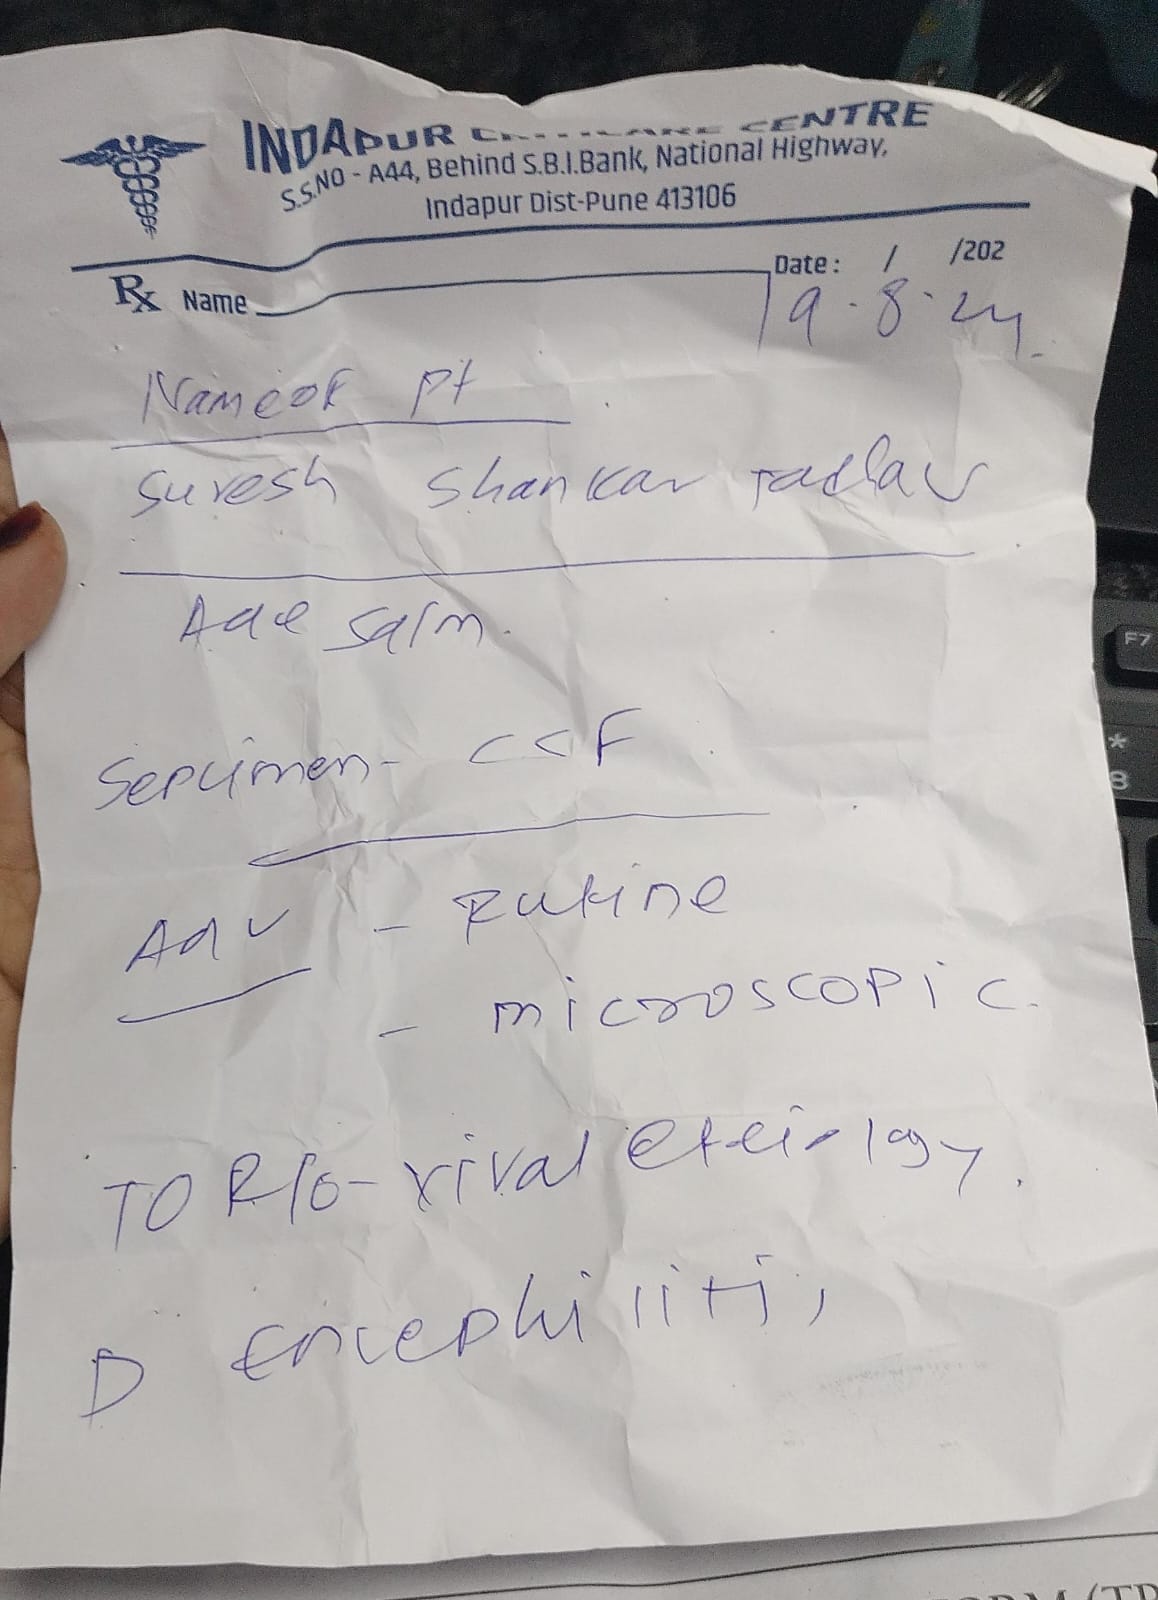 INDAPUR CENTRE
S.S.NO - A44, Behind S.B.I.Bank, National Highway,
Indapur Dist-Pune 413106
Rx Name
Date : / /202
19.8.24.
Name of pt
Suresh Shankar Jadhav
Age 50/m.
Sepcimen- CSF
Adv - Rutine
- microscopic.
TO R/o - viral eteiology.
D Encephilitis
F7
*
8